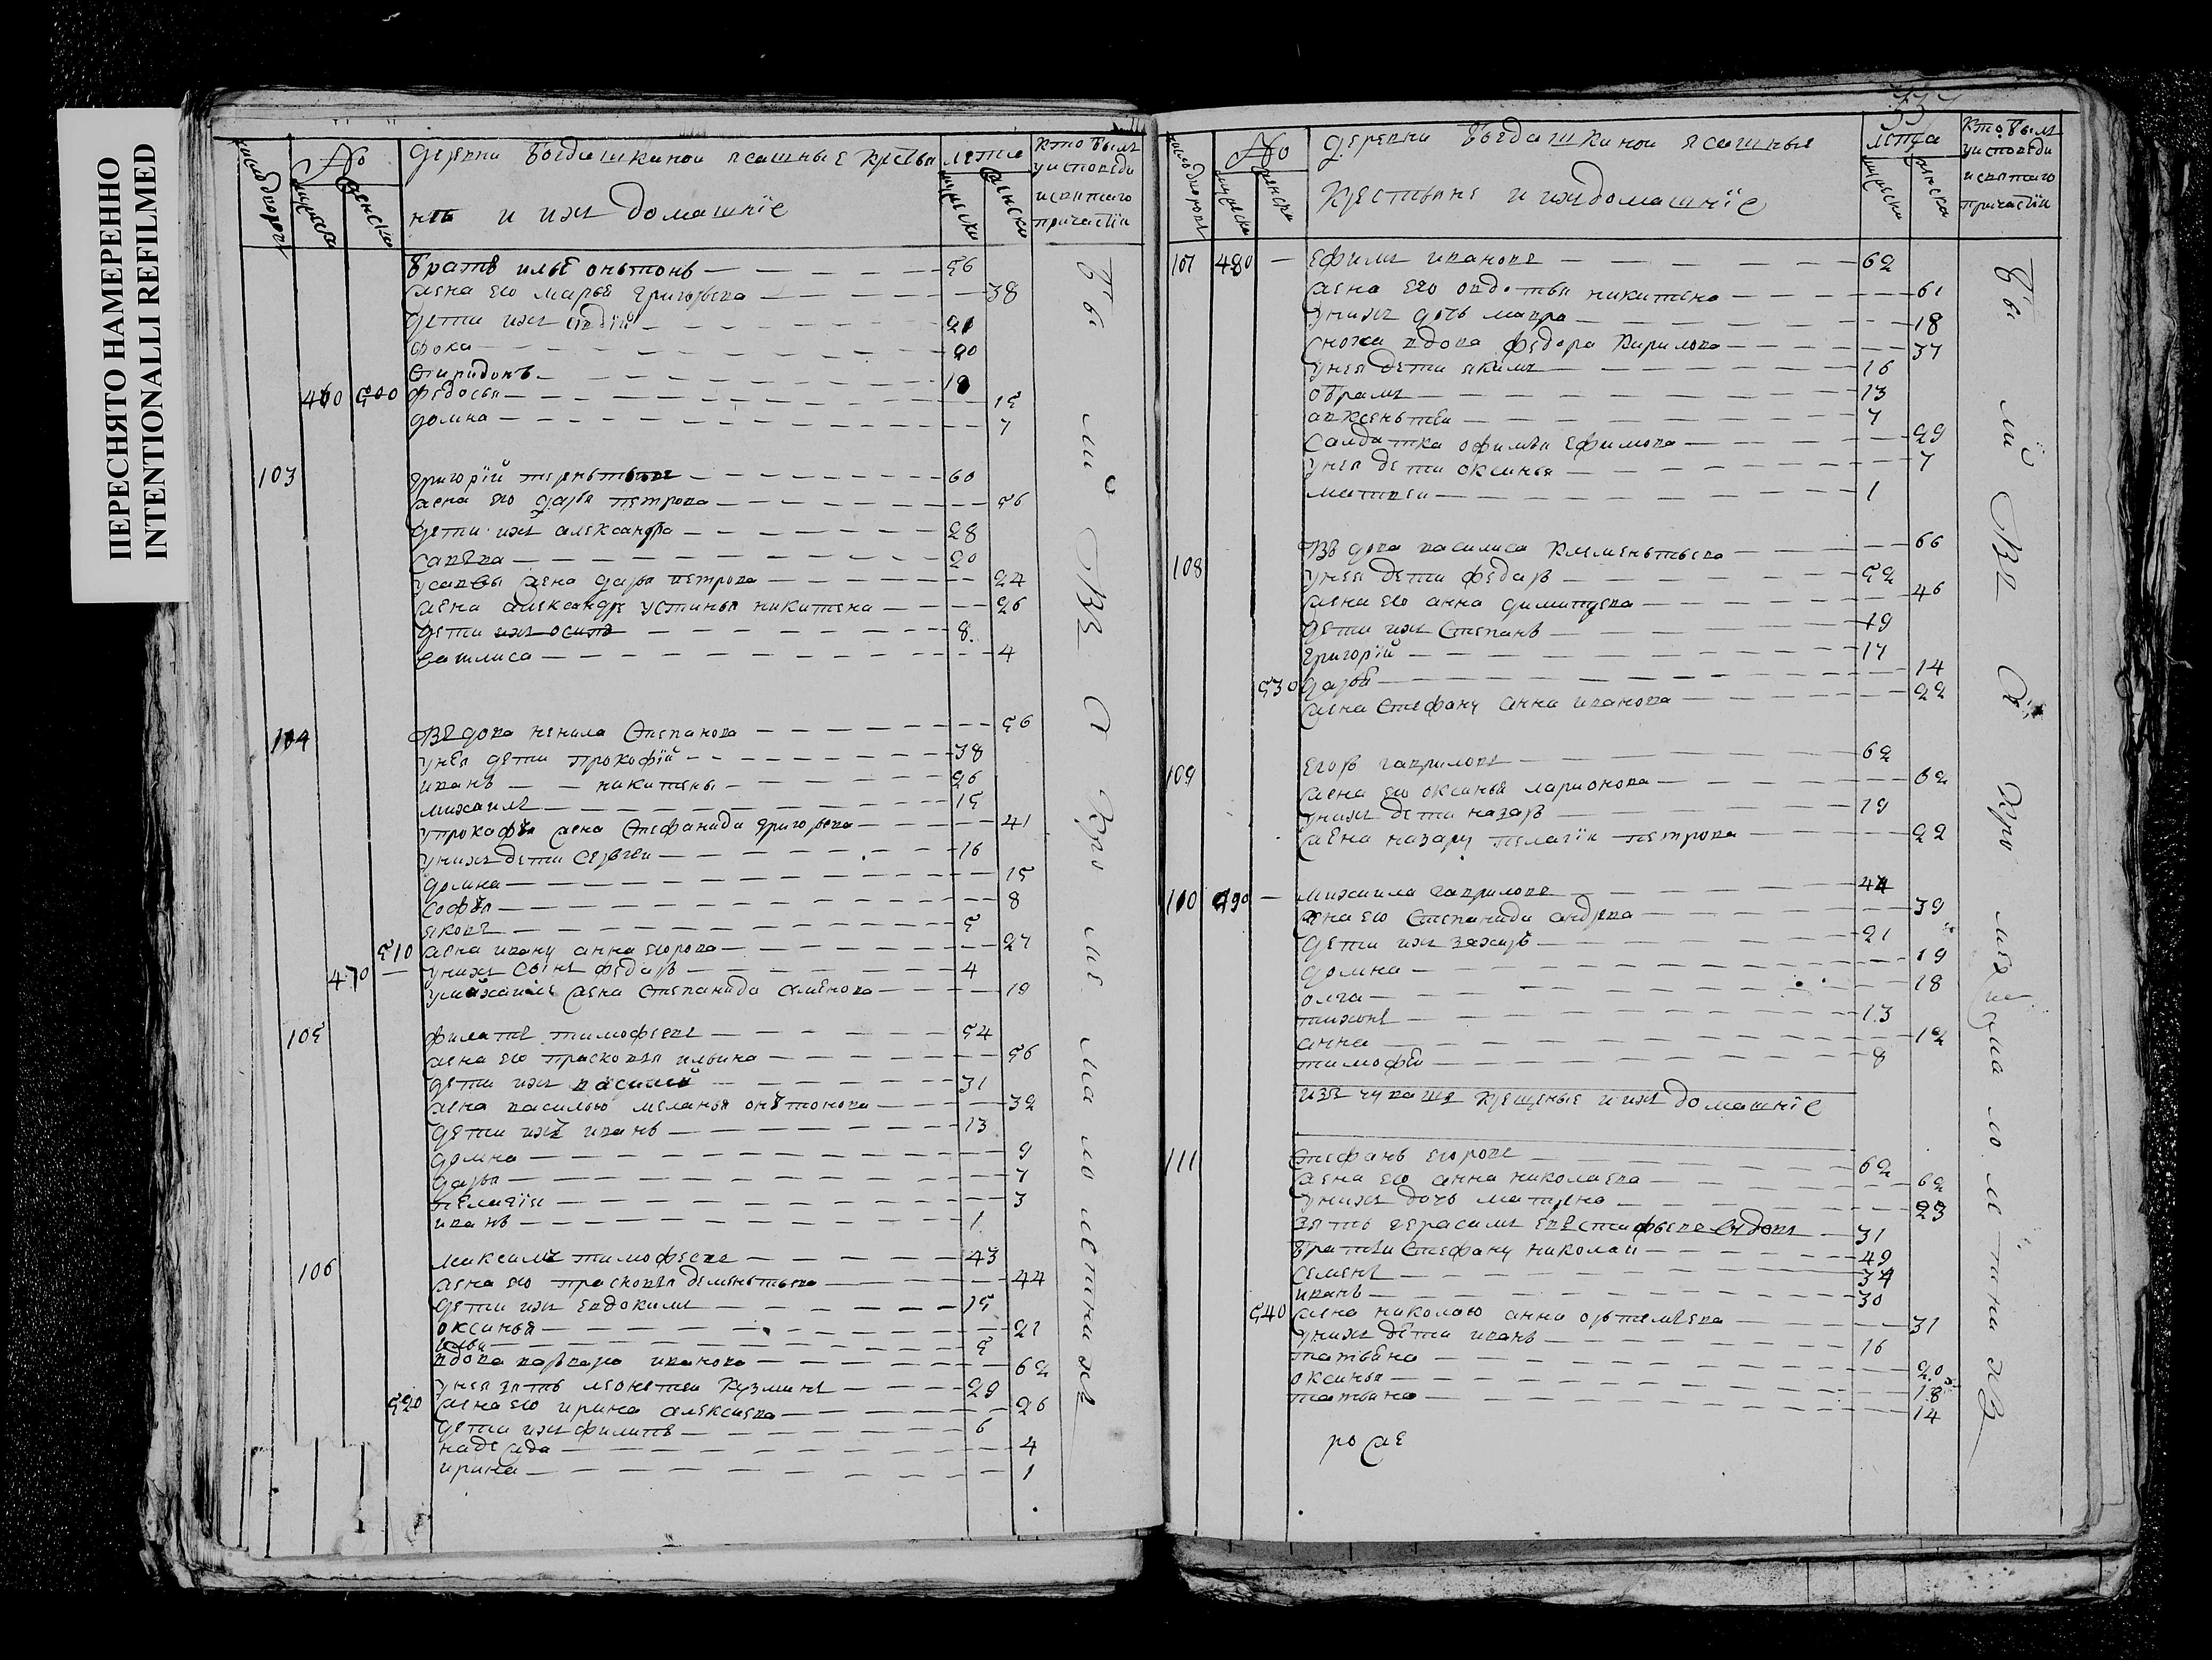 ПЕРЕСНЯТО НАМЕРЕННО
INTENTIONALLI REFILMED
№
деревни богдашкиной ясашные крестья
не и ихъ домашнїе
лета
кто былъ
у исповеди
и святаго
причастїя
мужеска
женска
братъ илье оньтонъ 56
жена его марья григорьева 38
дети ихъ 21
фока 20
спиридонъ 18
460 500 федосья 15
домна 7
103 григорїй терентьевъ 60
жена его дарья петрова 56
дети ихъ александра 28
савва 20
у саввы жена дарья петрова 24
жена александре устинья никитена 26
дети ихъ осипъ 8
4
104 вдова ненила степанова 56
у нея дети прокофїй 38
иванъ никитены 26
михаилъ 15
у прокофья жена стефанида григорьева 41
у нихъ дети сергеи 16
домна 15
софья 8
яковъ 5
510 жена ивану анна егорова 27
470 у нихъ сынъ федаръ 4
у михаиле жена степанида семенова 19
105 филатъ тимофеевъ 54
жена его прасковья ильина 56
дети ихъ василий 31
жена василью меланья оньтонова 32
дети ихъ иванъ 13
домна 9
дарья 7
пелагїя 3
иванъ 1
106 максимъ тимофеевъ 43
жена его прасковья деменьтьева 44
дети ихъ евдокимъ 15
оксинья 21
илья 5
вдова варвара иванова 62
у нея зять леонтеи кузминъ 29
520 жена его ирина алексиева 26
дети ихъ филипъ 6
надежда 4
ирина 1
были въ а кро ме мало летнихъ
337
№
деревни богдашкиной ясашные
крестьяне и ихъ домашнїе
лета
кто былъ
у исповеди
и святаго
причастїя
мужеска
женска
107 480 ефимъ ивановъ 62
жена его овдотья никитена 61
у нихъ дочь мавра 18
сноха вдова федора кирилова 37
у нея дети якимъ 16
обрамъ 13
авксеньтеи 7
салдатка офимья ефимова 29
у нея дети оксинья 7
матвеи 1
108 вдова василиса клеменьтьева 66
у нея дети федаръ 52
жена его анна димитрева 46
дети ихъ степанъ 19
григорїй 17
530 дарья 14
жена стефану анна иванова 22
109 егоръ гавриловъ 62
жена его оксинья ларионова 62
у нихъ дети назаръ 19
жена назару пелагїя петрова 22
110 490 михаила гавриловъ 44
жена его степанида андрева 39
дети ихъ захаръ 21
домна 19
олга 18
тихонъ 13
анна 12
тимофеи 8
изъ чувашъ крещеные и ихъ домашнїе
111 стефанъ егоровъ 62
жена его анна николаева 62
у нихъ дочь матрена 23
зять герасимъ евстифьевъ вдовъ 31
братья стефану николаи 49
семенъ 34
иванъ 30
540 жена николаю анна орьтемьева 31
у нихъ дети иванъ 16
татьяна 20
оксинья 18
татьяна 14
были въ а кро ме